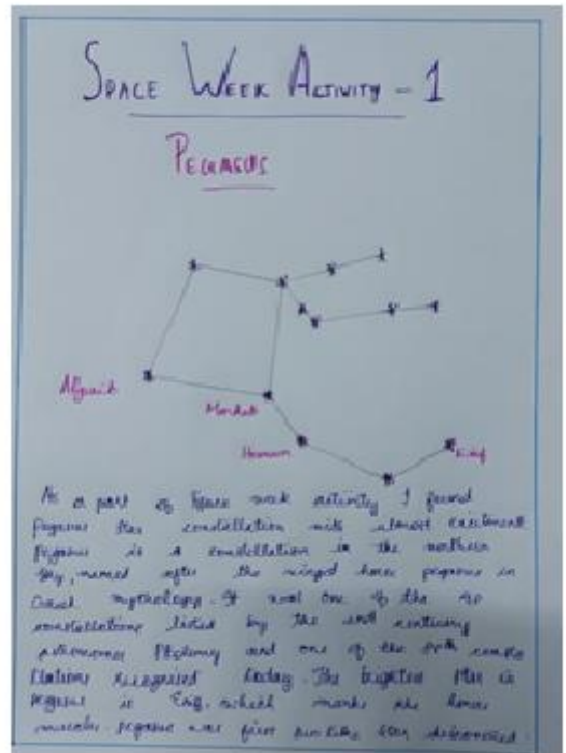 SPACE WEEK ACTIVITY - 1
PEGASUS
Algenib
Markab
Homam
Enif
As a part of Space week activity I found
pegasus the constellation with almost excitement
Pegasus is a constellation in the northern
sky, named after the winged horse pegasus in
Greek mythology. It was one of the
constellations listed by the century
astronomer Ptolemy and one of the
recognised today. The brightest star in
pegasus is Enif, which marks the horse
muzzle. pegasus was first